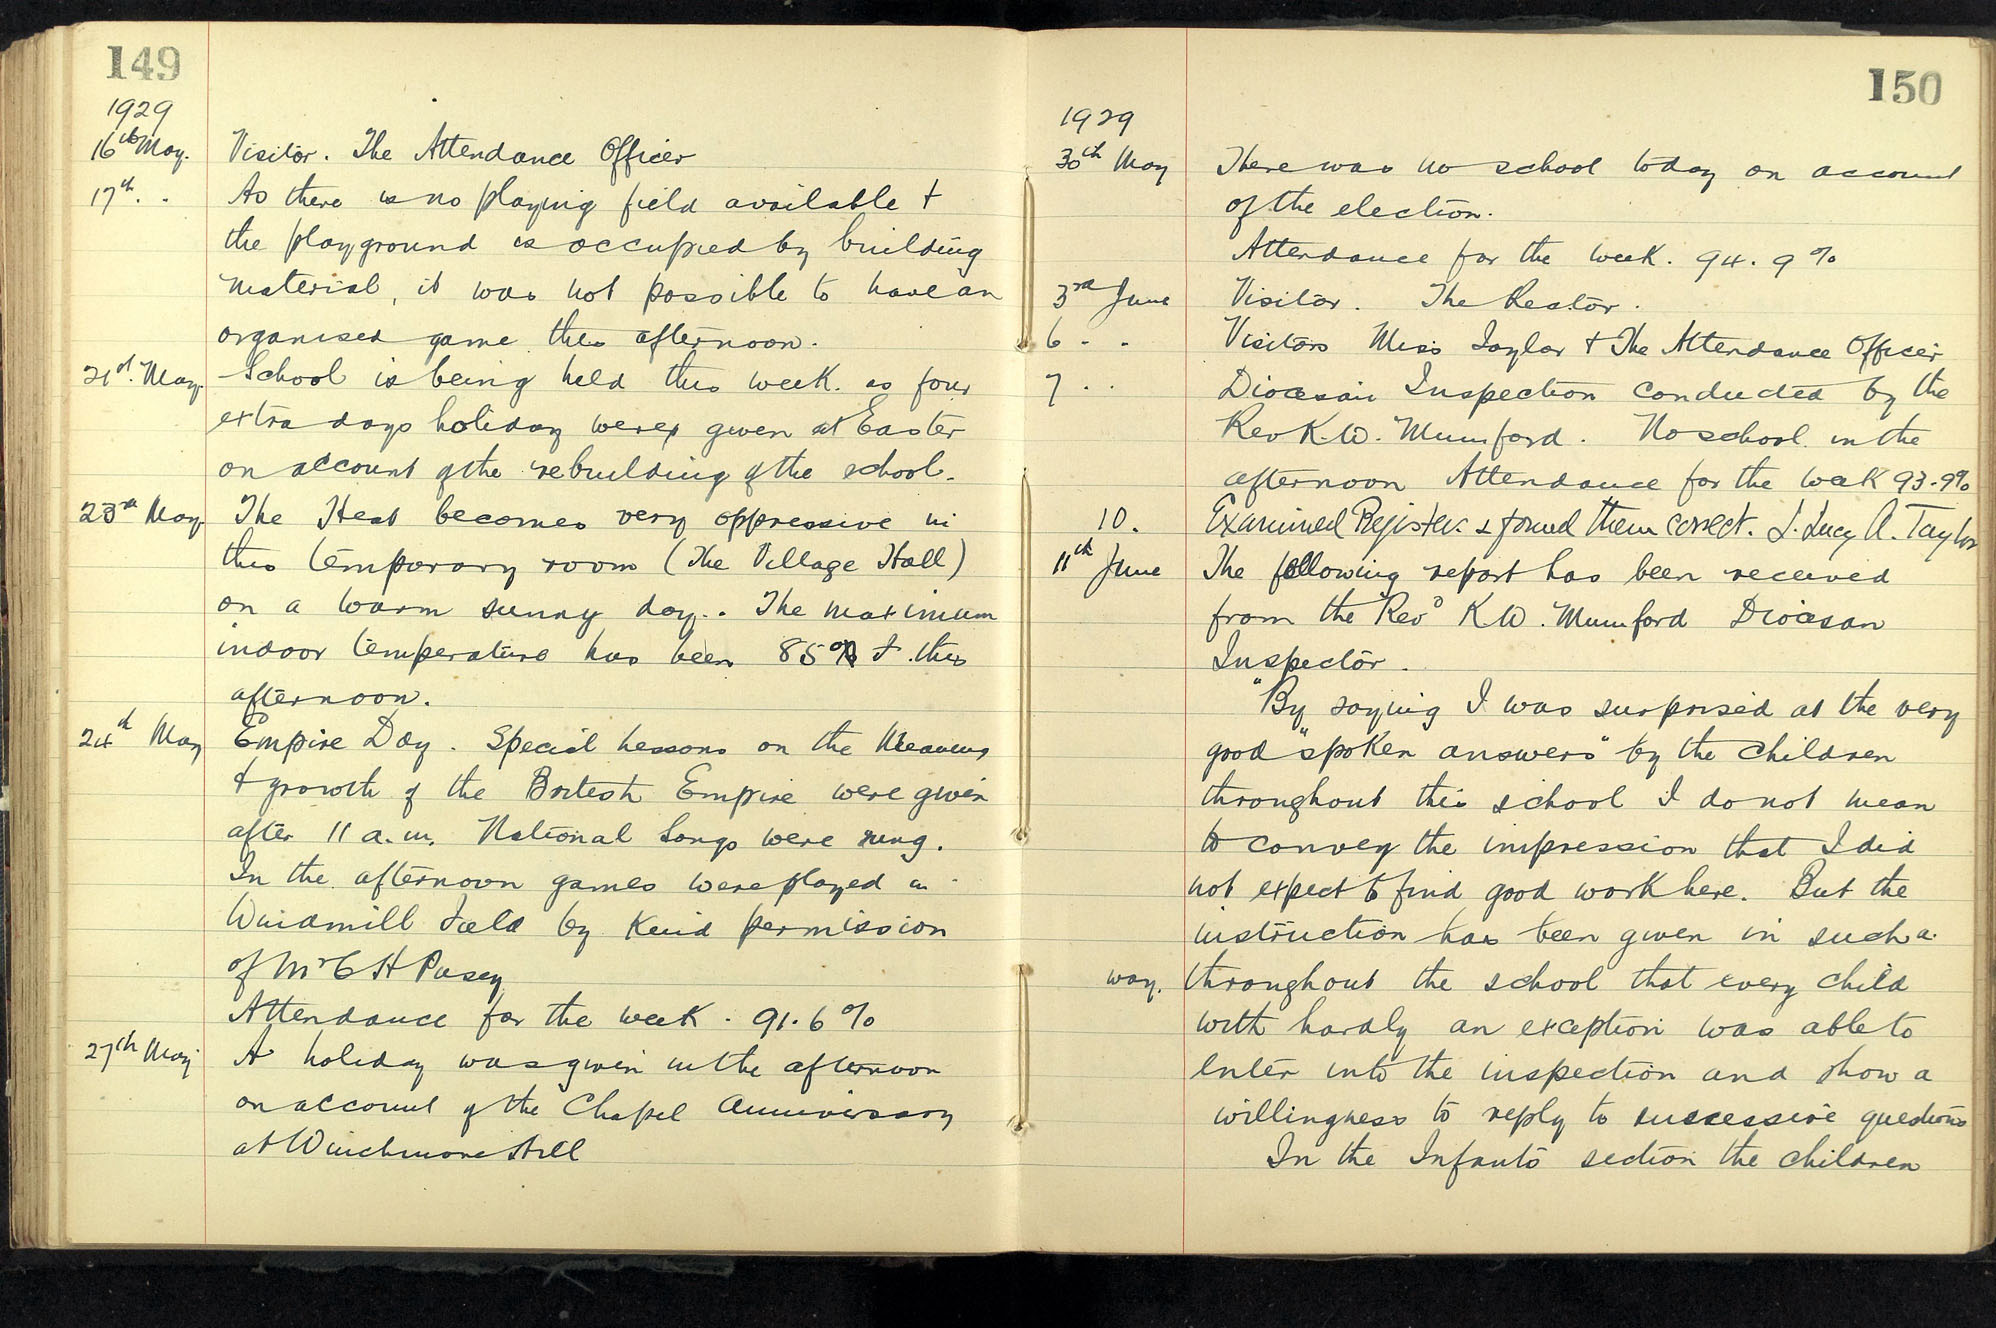 149
1929
16th May. Visitor. The Attendance Officer
17th. . As there is no playing field available +
the playground is occupied by building
material, it was not possible to have an
organised game this afternoon.
21st. May. School is being held this week. as four
extra days holiday were given at Easter
on account of the rebuilding of the school.
23rd May The Heat becomes very oppressive in
this temporary room (The Village Hall)
on a warm sunny day. . The maximum
indoor temperature has been 85° F. this
afternoon.
24th May Empire Day. Special Lessons on the Meaning
+ growth of the British Empire were given
after 11 a.m. National Songs were sung.
In the afternoon games were played in
Windmill Field by Kind permission
of Mr C H Pusey
Attendance for the week. 91.6 %
27th May A holiday was given in the afternoon
on account of the Chapel Anniversary
at Winchmore Hill
150
1929
30th May There was no school today on account
of the election.
Attendance for the week. 94.9 %
3rd June Visitor. The Rector.
6 . . Visitors Miss Taylor + The Attendance Officer
7 . . Diocesan Inspection conducted by the
Rev K. W. Mumford. No school in the
afternoon Attendance for the week 93.9%
10. Examined Registers & found them correct. L. Lucy A. Taylor
11th June The following report has been received
from the Revd K W. Mumford Diocesan
Inspector.
"By saying I was surprised at the very
good "spoken answers" by the children
throughout this school I do not mean
to convey the impression that I did
not expect to find good work here. But the
instruction has been given in such a
way. throughout the school that every child
with hardly an exception was able to
enter into the inspection and show a
willingness to reply to successive questions
In the Infants section the children